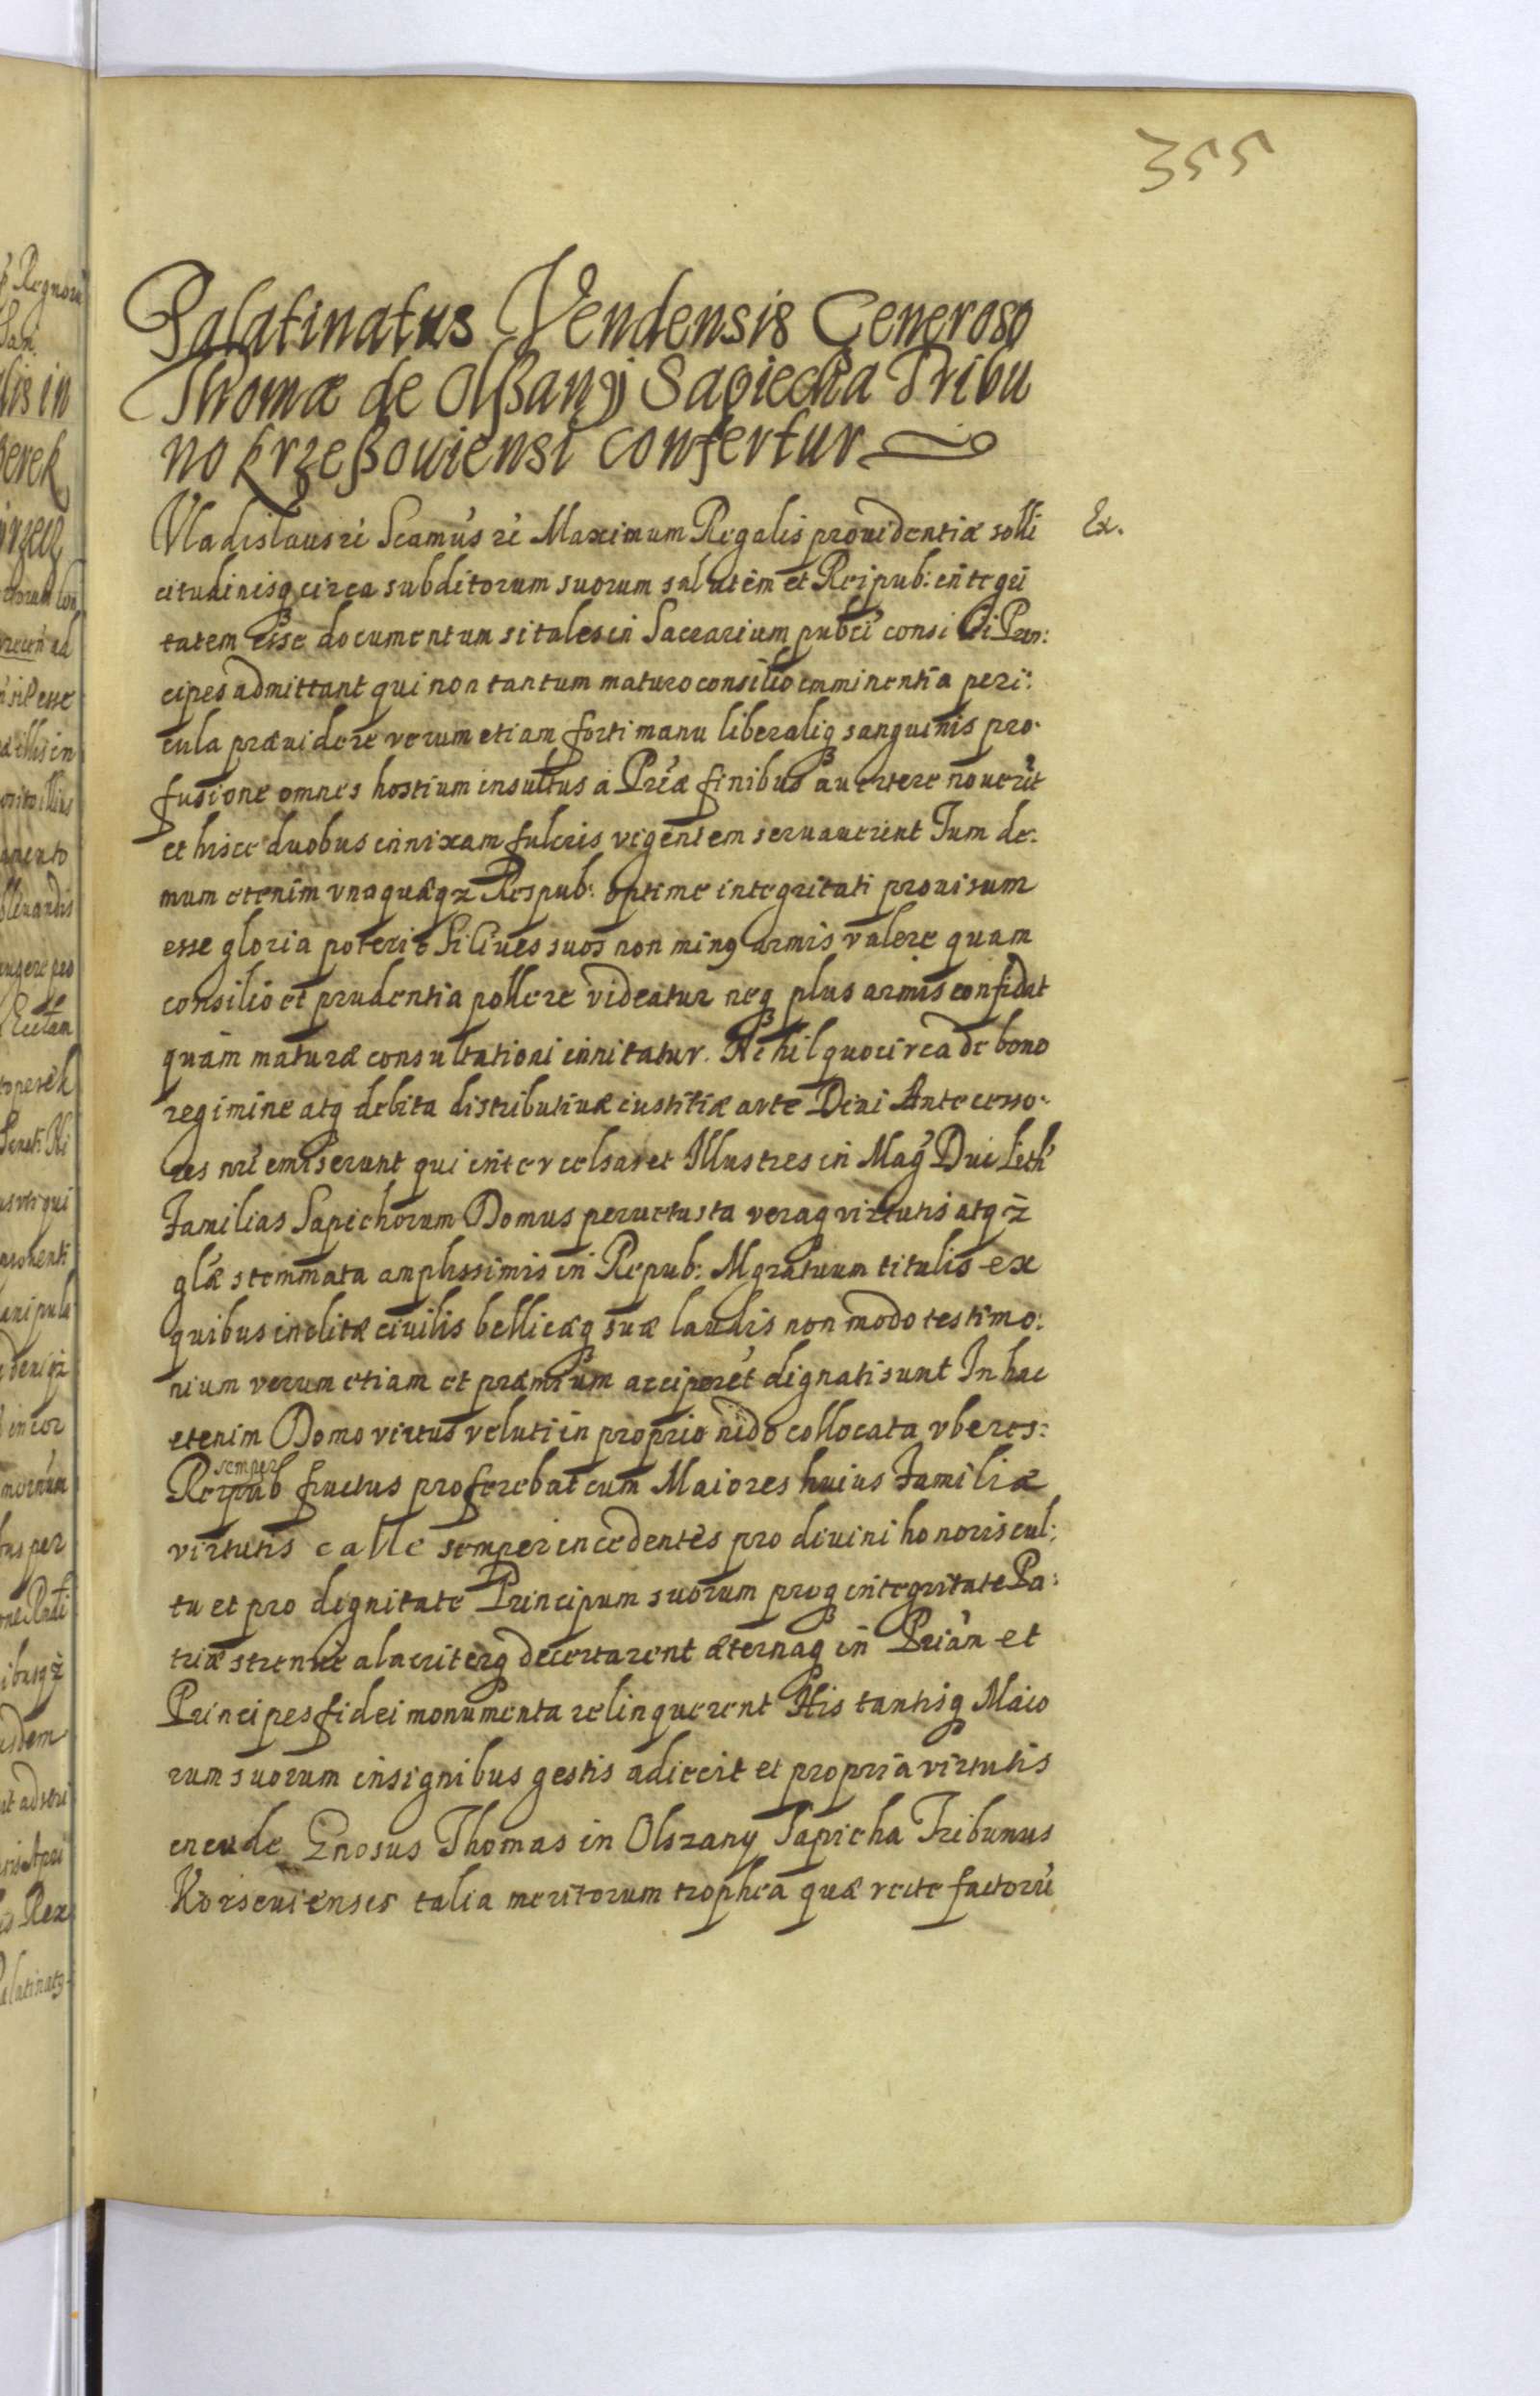 355
Palatinatus Vendensis Generoso
Thomæ de Olßany Sapiecha Tribu
no Krzeßoviensi confertur
Vladislaus &c Scāmus &c Maximum Regalis prouidentiæ solli
Ex.
citudinisq circa subditorum suorum salutem et Reipub: integri
tatem esse documentum si tales in Sacrarium pubci consilii Prin:
cipes admittant qui non tantum maturo consilio imminentia peri:
cula præuidere verum etiam forti manu liberaliq sanguinis pro:
fusione omnes hostium insultus à Priæ finibus auertere nouerit
et hisce duobus innixam fulcris vigentem seruauerint Tum de:
mum etenim vnaquæqz Respub: optime integritati prouisum
esse gloriā poterit si Ciues suos non ming armis valere quam
consilio et prudentia pollere videatur neq plus armis confidat
quam maturæ consultationi innitatur. Nihil quocirca de bono
regimine atq debita distributiuæ iustitiæ arte Diui Antecesso:
res nri emiserunt qui inter celsas et Illustres in Mag Duc Lith
Familias Sapiehorum Domus peruetusta veraq virtutis atqz
glæ stemmata amplissimis in Repub: Mgratuum titulis ex
quibus inclitæ ciuilis bellicæq suæ laudis non modo testimo:
nium verum etiam et præmium acciperet dignati sunt In hac
etenim Domo virtus veluti in proprio nido collocata vberes:
semper
Reipub fructus proferebat cum Maiores huius Familiæ
virtutis calle semper incedentes pro diuini honoris cul:
tu et pro dignitate Principum suorum proq integritate Pa:
triæ strenue alacriterq decertarent æternaq in Priam et
Principes fidei monumenta relinquerent His tantisq Maio
rum suorum insignibus gestis adiecit et propria virtutis
Gnosus Thomas in Olszany Sapieha Tribunus
talia meritorum trophea quæ recte factorū